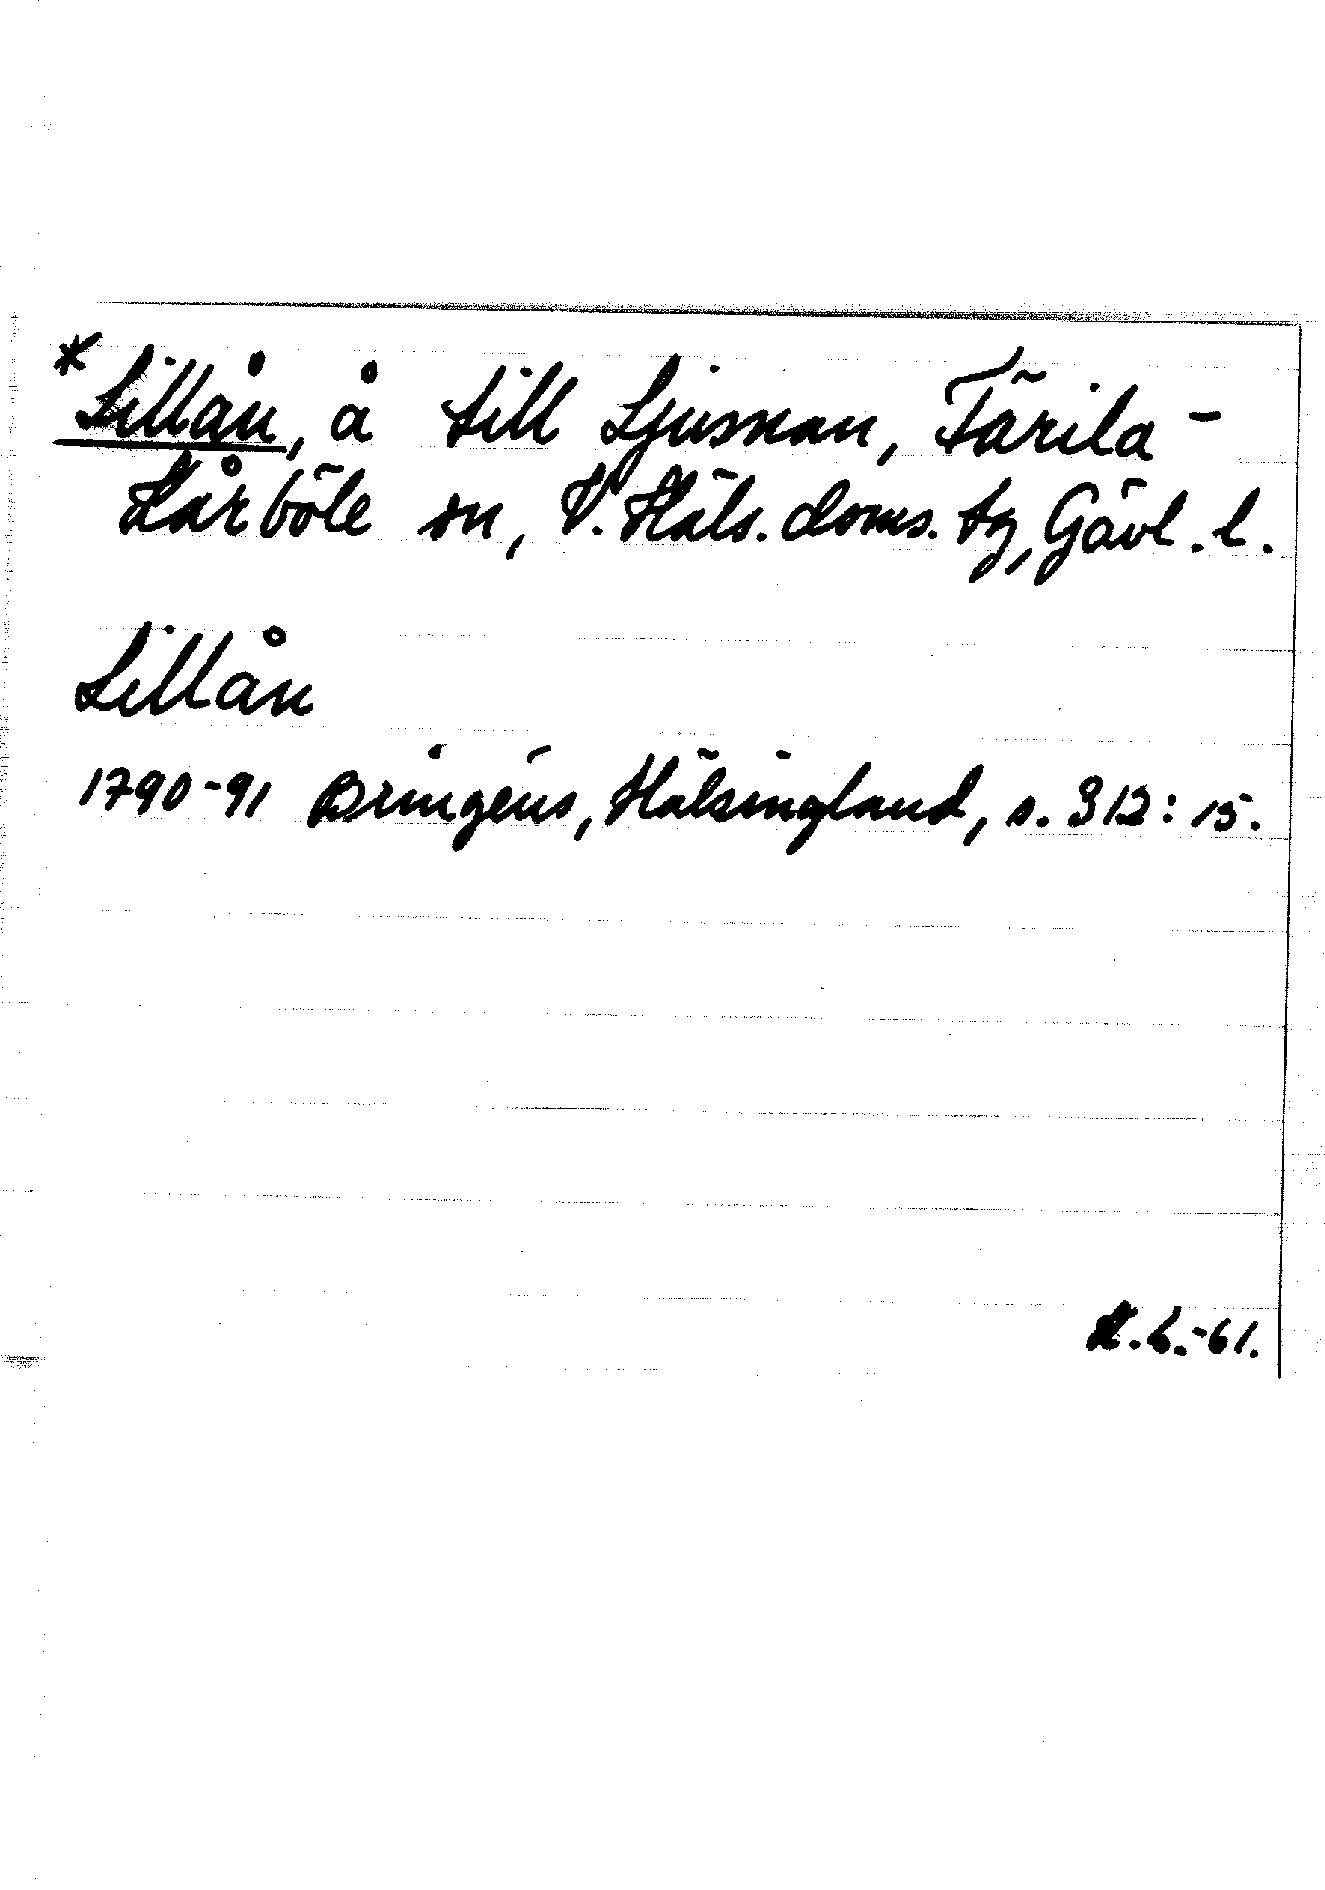 *Lillån, å till Ljusnan, Färila-
Kårböle sn, V. Häls. doms. tg, Gävl. l.
Lillån
1790-91 Bringéus, Hälsingland, s. 312:15.
K.L.-61.